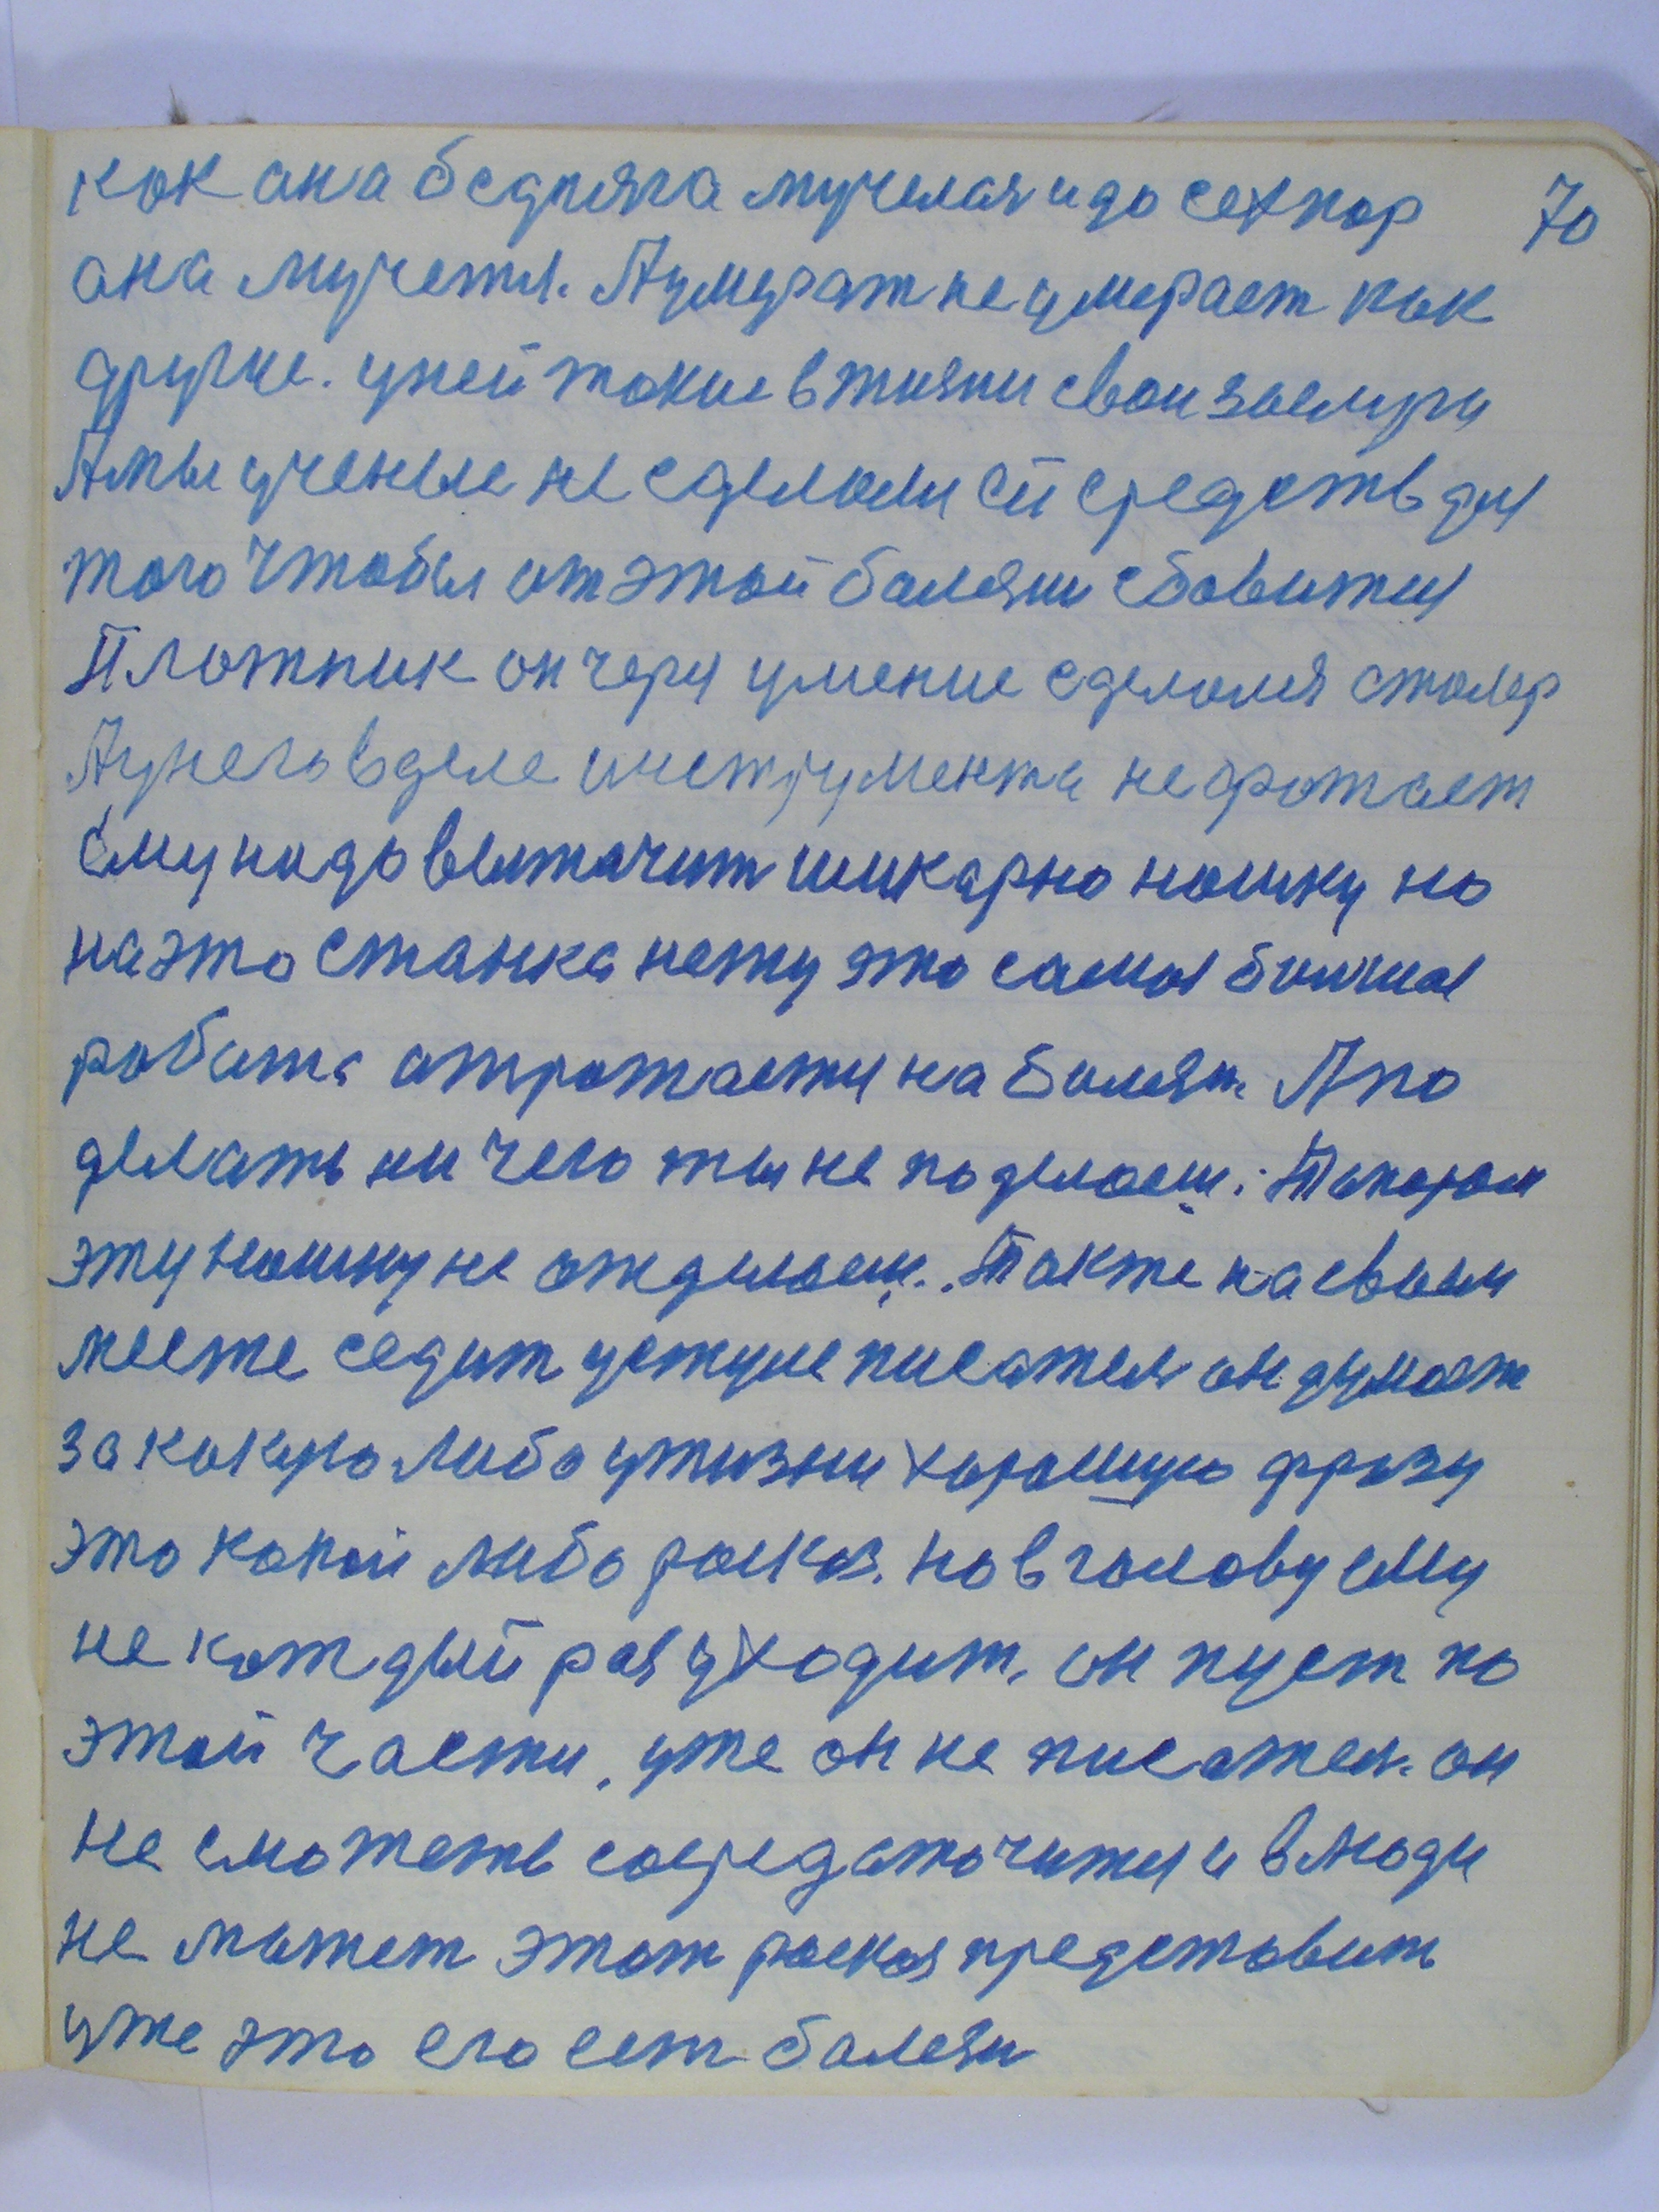 как ана бедняга мучелая и до сех пор 70
ана мучетя. А умират не умерает как
другие. у ней такие в жизни свои
А мы ученые не сделали ей средств для
того чтобы от этой балезни сбавится
Плотник он через умение сделался столяр
А у него в деле инструмента не фатает
ему надо выточит шикарно ношку но
на это станка нету это самая
робата атротается на болезн. А по
делать ни чего ты не поделаеш. Топором
эту ношку не отделаеш. Также на своем
месте седит у стуле писатель он думает
за какую либо у жизни хорошую фразу
это какой либо расказ. но в голову ему
не каждый раз уходит. он пуст по
этой части, уже он не писатель. он
не сможеть сосредаточится и в люди
не может этот расказ представить
уже это его ест балезн